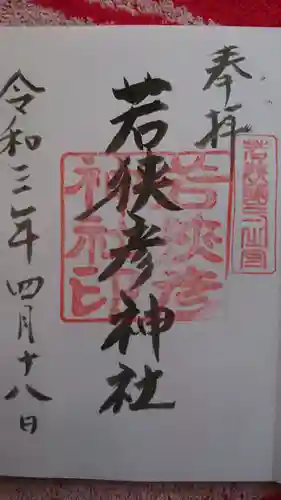 奉拝
若狭國一之宮
若狭彦神社
若狭彦
神社印
令和三年四月十八日